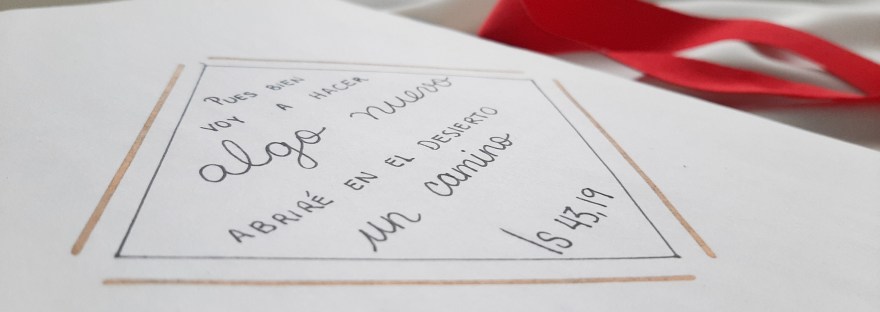 PUES BIEN
VOY A HACER
algo nuevo
ABRIRÉ EN EL DESIERTO
un camino
Is 43,19